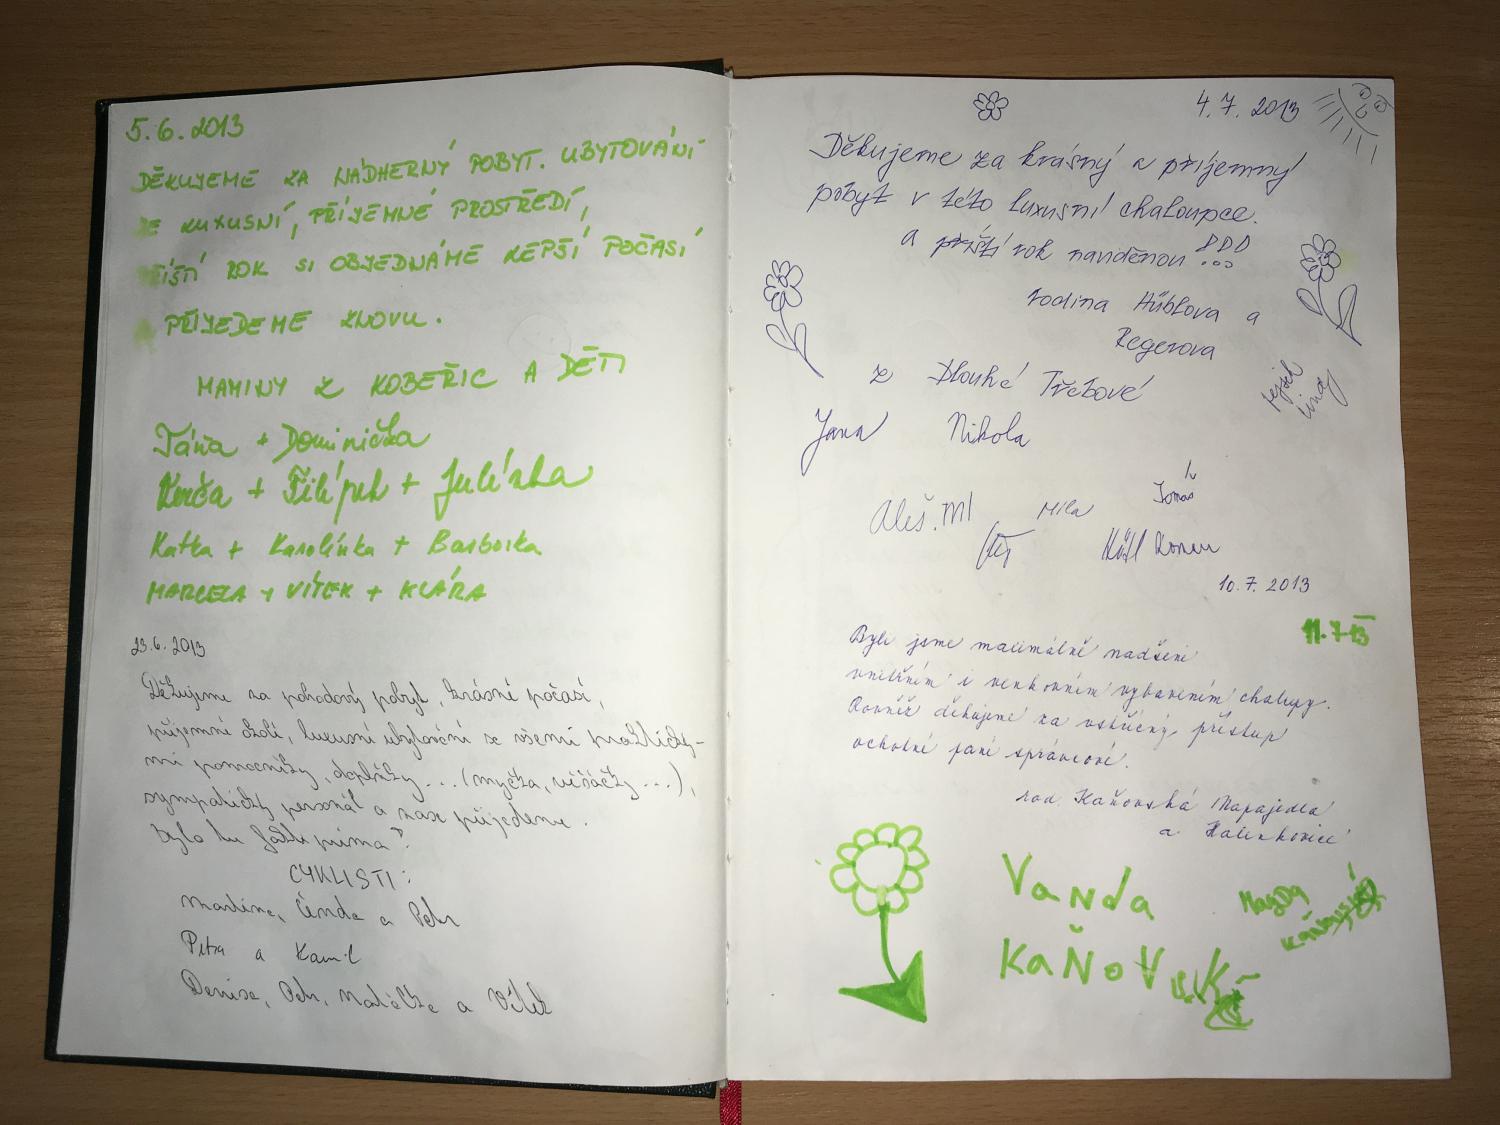 5.6.2013
DĚKUJEME ZA NÁDHERNÝ POBYT. UBYTOVÁNÍ
JE LUXUSNÍ, PŘÍJEMNÉ PROSTŘEDÍ,
PŘÍŠTÍ ROK SI OBJEDNÁME LEPŠÍ POČASÍ
PŘIJEDEME ZNOVU.
MAMINY Z KOBEŘIC A DĚTI
Táňa + Dominička
+ Filípek + Julinka
Katka + Karolínka + Barborka
MARCELA + VÍTEK + KLÁRA
23.6.2013
Děkujeme za pohodový pobyt, krásné počasí,
příjemné okolí, luxusní ubytování se všemi praktický-
mi pomocníky, doplňky... (myčka, věšáčky...),
sympatický personál a zase přijedeme.
Bylo tu fakt prima!
CYKLISTI:
Martina, Čenda a Petr
Petra a Kamil
Denisa, Petr, a Vítek
4.7.2013
Děkujeme za krásný a příjemný
pobyt v této luxusní chaloupce.
a příští rok naviděnou!!!
rodina Hüblova a
Regerova
z Dlouhé Třebové
Jana Nikola
Aleš.Ml Míla Tomáš
10.7.2013
11.7.13
Byli jsme maximálně nadšeni
vnitřním i venkovním vybavením chalupy.
Rovněž děkujeme za vstřícný přístup
ochotné paní správcové.
rod. Kaňovská Napajedla
a Halenkovice
VaNda
KaŇoVsK
Magda
Kaňovská